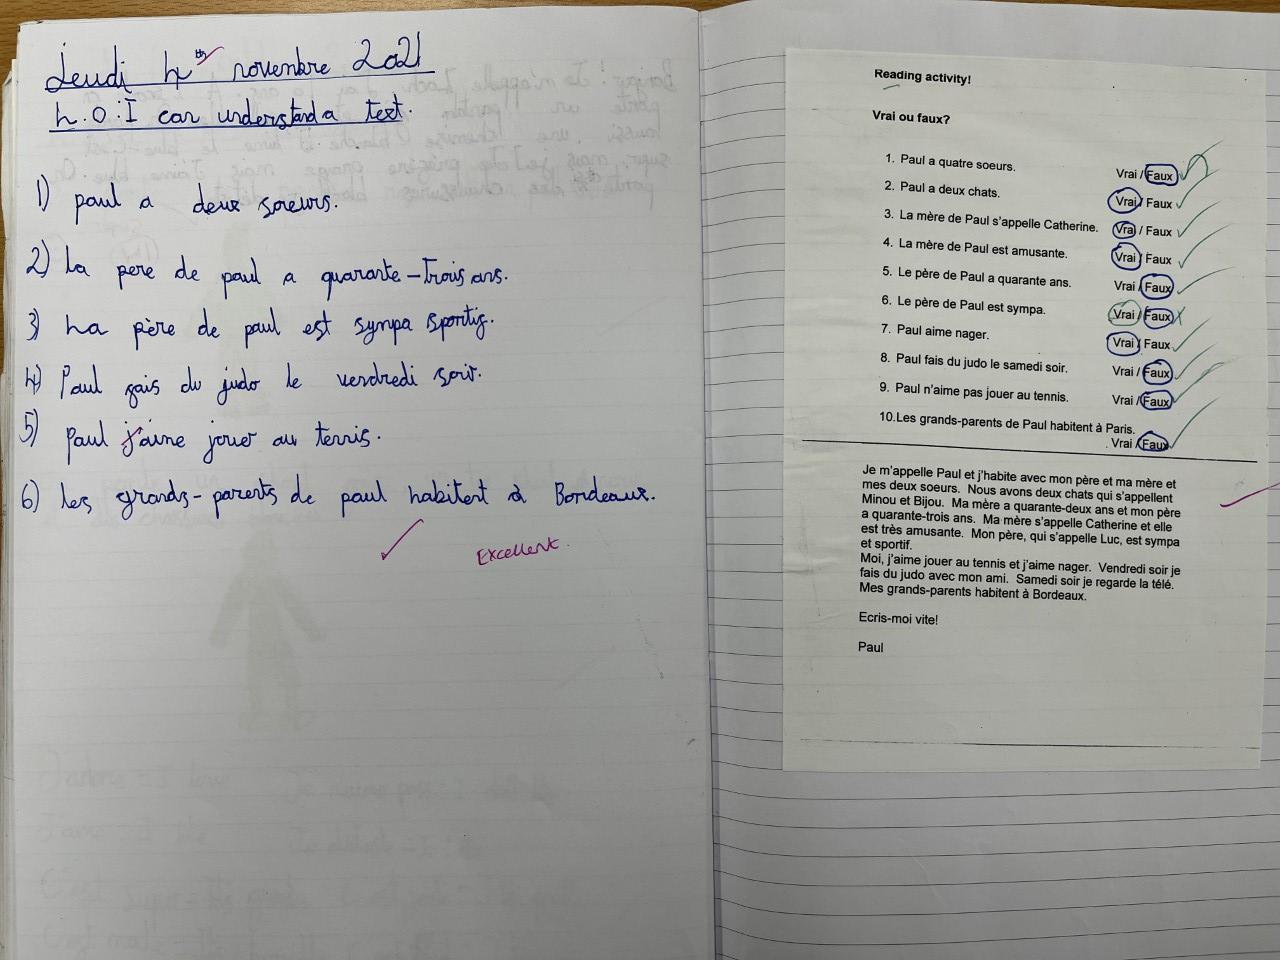 Jeudi 4th novembre 2021
L.O: I can understand a text.
1) paul a deux soeurs.
2) La pere de paul a quarante-trois ans.
3) La père de paul est sympa sportif.
4) Paul fais du judo le vendredi soir.
5) Paul j'aime jouer au tennis.
6) les grands-parents de paul habitent à Bordeaux.
Excellent.
Reading activity!
Vrai ou faux?
1. Paul a quatre soeurs. Vrai / Faux
2. Paul a deux chats. Vrai / Faux
3. La mère de Paul s'appelle Catherine. Vrai / Faux
4. La mère de Paul est amusante. Vrai / Faux
5. Le père de Paul a quarante ans. Vrai / Faux
6. Le père de Paul est sympa. Vrai / Faux
7. Paul aime nager. Vrai / Faux
8. Paul fais du judo le samedi soir. Vrai / Faux
9. Paul n'aime pas jouer au tennis. Vrai / Faux
10. Les grands-parents de Paul habitent à Paris.
Vrai / Faux
Je m'appelle Paul et j'habite avec mon père et ma mère et
mes deux soeurs. Nous avons deux chats qui s'appellent
Minou et Bijou. Ma mère a quarante-deux ans et mon père
a quarante-trois ans. Ma mère s'appelle Catherine et elle
est très amusante. Mon père, qui s'appelle Luc, est sympa
et sportif.
Moi, j'aime jouer au tennis et j'aime nager. Vendredi soir je
fais du judo avec mon ami. Samedi soir je regarde la télé.
Mes grands-parents habitent à Bordeaux.
Ecris-moi vite!
Paul